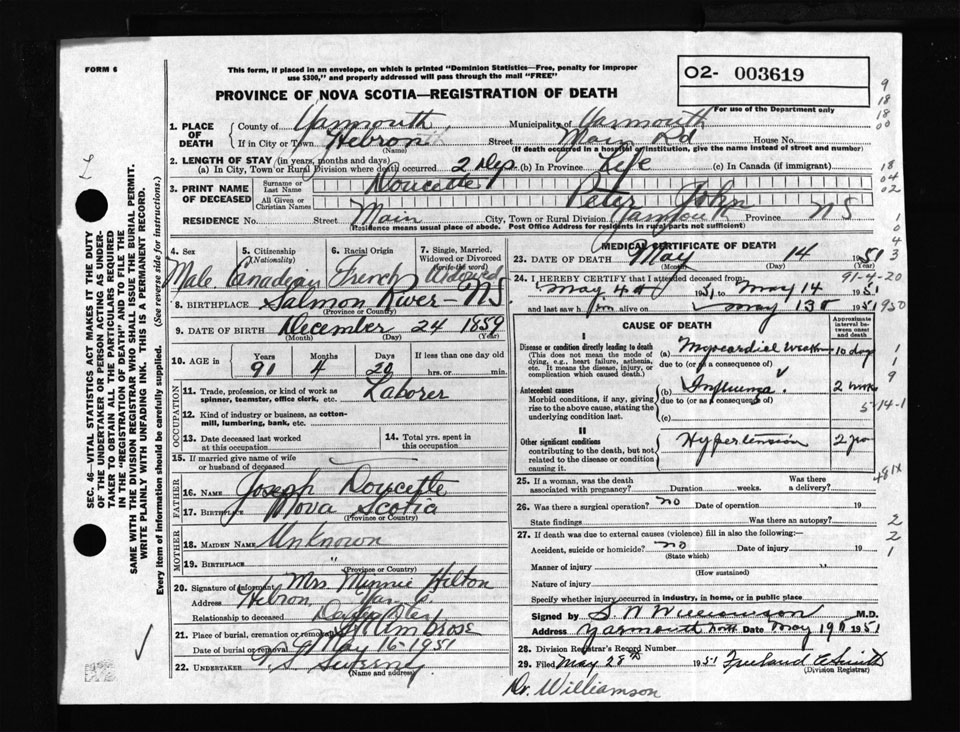 FORM 6
This form, if placed in an envelope, on which is printed "Dominion Statistics—Free, penalty for improper
use $300," and properly addressed will pass through the mail "FREE"
O2- 003619
PROVINCE OF NOVA SCOTIA—REGISTRATION OF DEATH
For use of the Department only
1. PLACE OF DEATH County of Yarmouth Municipality of Yarmouth
If in City or Town Hebron Street Main Rd House No.
(Name) (If death occurred in a hospital or institution, give the name instead of street and number)
2. LENGTH OF STAY (in years, months and days)
(a) In City, Town or Rural Division where death occurred 2 Dys. (b) In Province Life (c) In Canada (if immigrant)
3. PRINT NAME OF DECEASED Surname or Last Name Doucette
All Given or Christian Names Peter John
RESIDENCE No. Street Main City, Town or Rural Division Yarmouth Province NS
(Residence means usual place of abode. Post Office Address for residents in rural parts not sufficient)
4. Sex 5. Citizenship (Nationality) 6. Racial Origin 7. Single, Married, Widowed or Divorced (Write the word)
Male Canadian French Widowed
8. BIRTHPLACE Salmon River - NS
(Province or Country)
9. DATE OF BIRTH December 24 1859
(Month) (Day) (Year)
10. AGE in Years Months Days If less than one day old
91 4 20 hrs. or min.
OCCUPATION
11. Trade, profession, or kind of work as spinner, teamster, office clerk, etc. Laborer
12. Kind of industry or business, as cotton-mill, lumbering, bank, etc.
13. Date deceased last worked at this occupation
14. Total yrs. spent in this occupation
15. If married give name of wife or husband of deceased
FATHER
16. NAME Joseph Doucette
17. BIRTHPLACE Nova Scotia
(Province or Country)
MOTHER
18. MAIDEN NAME Unknown
19. BIRTHPLACE "
(Province or Country)
20. Signature of informant Mrs. Minnie Hilton
Address Hebron, Yar. Co.
Relationship to deceased Daughter
21. Place of burial, cremation or removal St Ambrose
Date of burial or removal May 16-1951
22. UNDERTAKER
(Name and address)
MEDICAL CERTIFICATE OF DEATH
23. DATE OF DEATH May 14 1951
(Month) (Day)
24. I HEREBY CERTIFY that I attended deceased from:
May 4th 1951 to May 14 1951
and last saw h im alive on May 13th 1951
CAUSE OF DEATH
Approximate interval between onset and death
I
Disease or condition directly leading to death
(This does not mean the mode of dying, e.g., heart failure, asthenia, etc. It means the disease, injury, or complication which caused death.)
(a) Myocardial 10 days
due to (or as a consequence of)
Antecedent causes
Morbid conditions, if any, giving rise to the above cause, stating the underlying condition last.
(b) Influenza 2 weeks
due to (or as a consequence of)
(c)
II
Other significant conditions
contributing to the death, but not related to the disease or condition causing it.
Hypertension 2 yrs
25. If a woman, was the death associated with pregnancy? Duration weeks. Was there a delivery?
26. Was there a surgical operation? no Date of operation 19
State findings Was there an autopsy?
27. If death was due to external causes (violence) fill in also the following:—
Accident, suicide or homicide? no Date of injury 19
(State which)
Manner of injury "
(How sustained)
Nature of injury
Specify whether injury occurred in industry, in home, or in public place
Signed by S W Williamson M.D.
Address Yarmouth North Date May 19th 1951
28. Division Registrar's Record Number
29. Filed May 28th 1951 Freeland
(Division Registrar)
Dr. Williamson
SEC. 46—VITAL STATISTICS ACT MAKES IT THE DUTY
OF THE UNDERTAKER OR PERSON ACTING AS UNDER-
TAKER TO OBTAIN ALL THE PARTICULARS REQUIRED
IN THE "REGISTRATION OF DEATH" AND TO FILE THE
SAME WITH THE DIVISION REGISTRAR WHO SHALL ISSUE THE BURIAL PERMIT.
WRITE PLAINLY WITH UNFADING INK. THIS IS A PERMANENT RECORD.
Every item of information should be carefully supplied. (See reverse side for instructions.)
9
18
18
00
18
04
02
1
0
4
3
91-4-20
950
1
1
9
5-14-1
481X
2
2
1